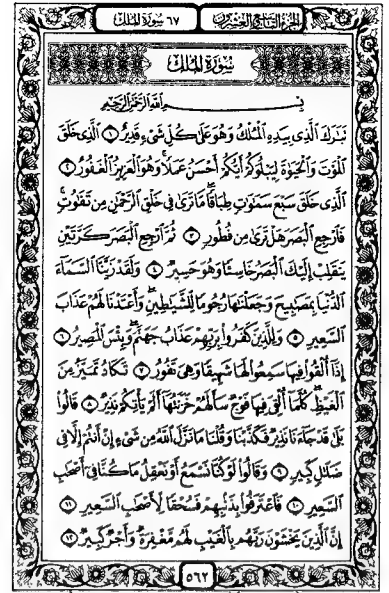 الجزء التاسع والعشرون
٦٧ سورة الملك
سورة الملك
بسم الله الرحمن الرحيم
تبرك الذى بيده الملك وهو على كل شىء قدير ١ الذى خلق
الموت والحيوة ليبلوكم أيكم أحسن عملا وهو العزيز الغفور ٢
الذى خلق سبع سموت طباقا ما ترى فى خلق الرحمن من تفوت
فارجع البصر هل ترى من فطور ٣ ثم ارجع البصر كرتين
ينقلب إليك البصر خاسئا وهو حسير ٤ ولقد زينا السماء
الدنيا بمصبيح وجعلنها رجوما للشيطين وأعتدنا لهم عذاب
السعير ٥ وللذين كفروا بربهم عذاب جهنم وبئس المصير ٦
إذا ألقوا فيها سمعوا لها شهيقا وهى تفور ٧ تكاد تميز من
الغيظ كلما ألقى فيها فوج سألهم خزنتها ألم يأتكم نذير ٨ قالوا
بلى قد جاءنا نذير فكذبنا وقلنا ما نزل الله من شىء إن أنتم إلا فى
ضلل كبير ٩ وقالوا لو كنا نسمع أو نعقل ما كنا فى أصحب
السعير ١٠ فاعترفوا بذنبهم فسحقا لأصحب السعير ١١
إن الذين يخشون ربهم بالغيب لهم مغفرة وأجر كبير ١٢
٥٦٢